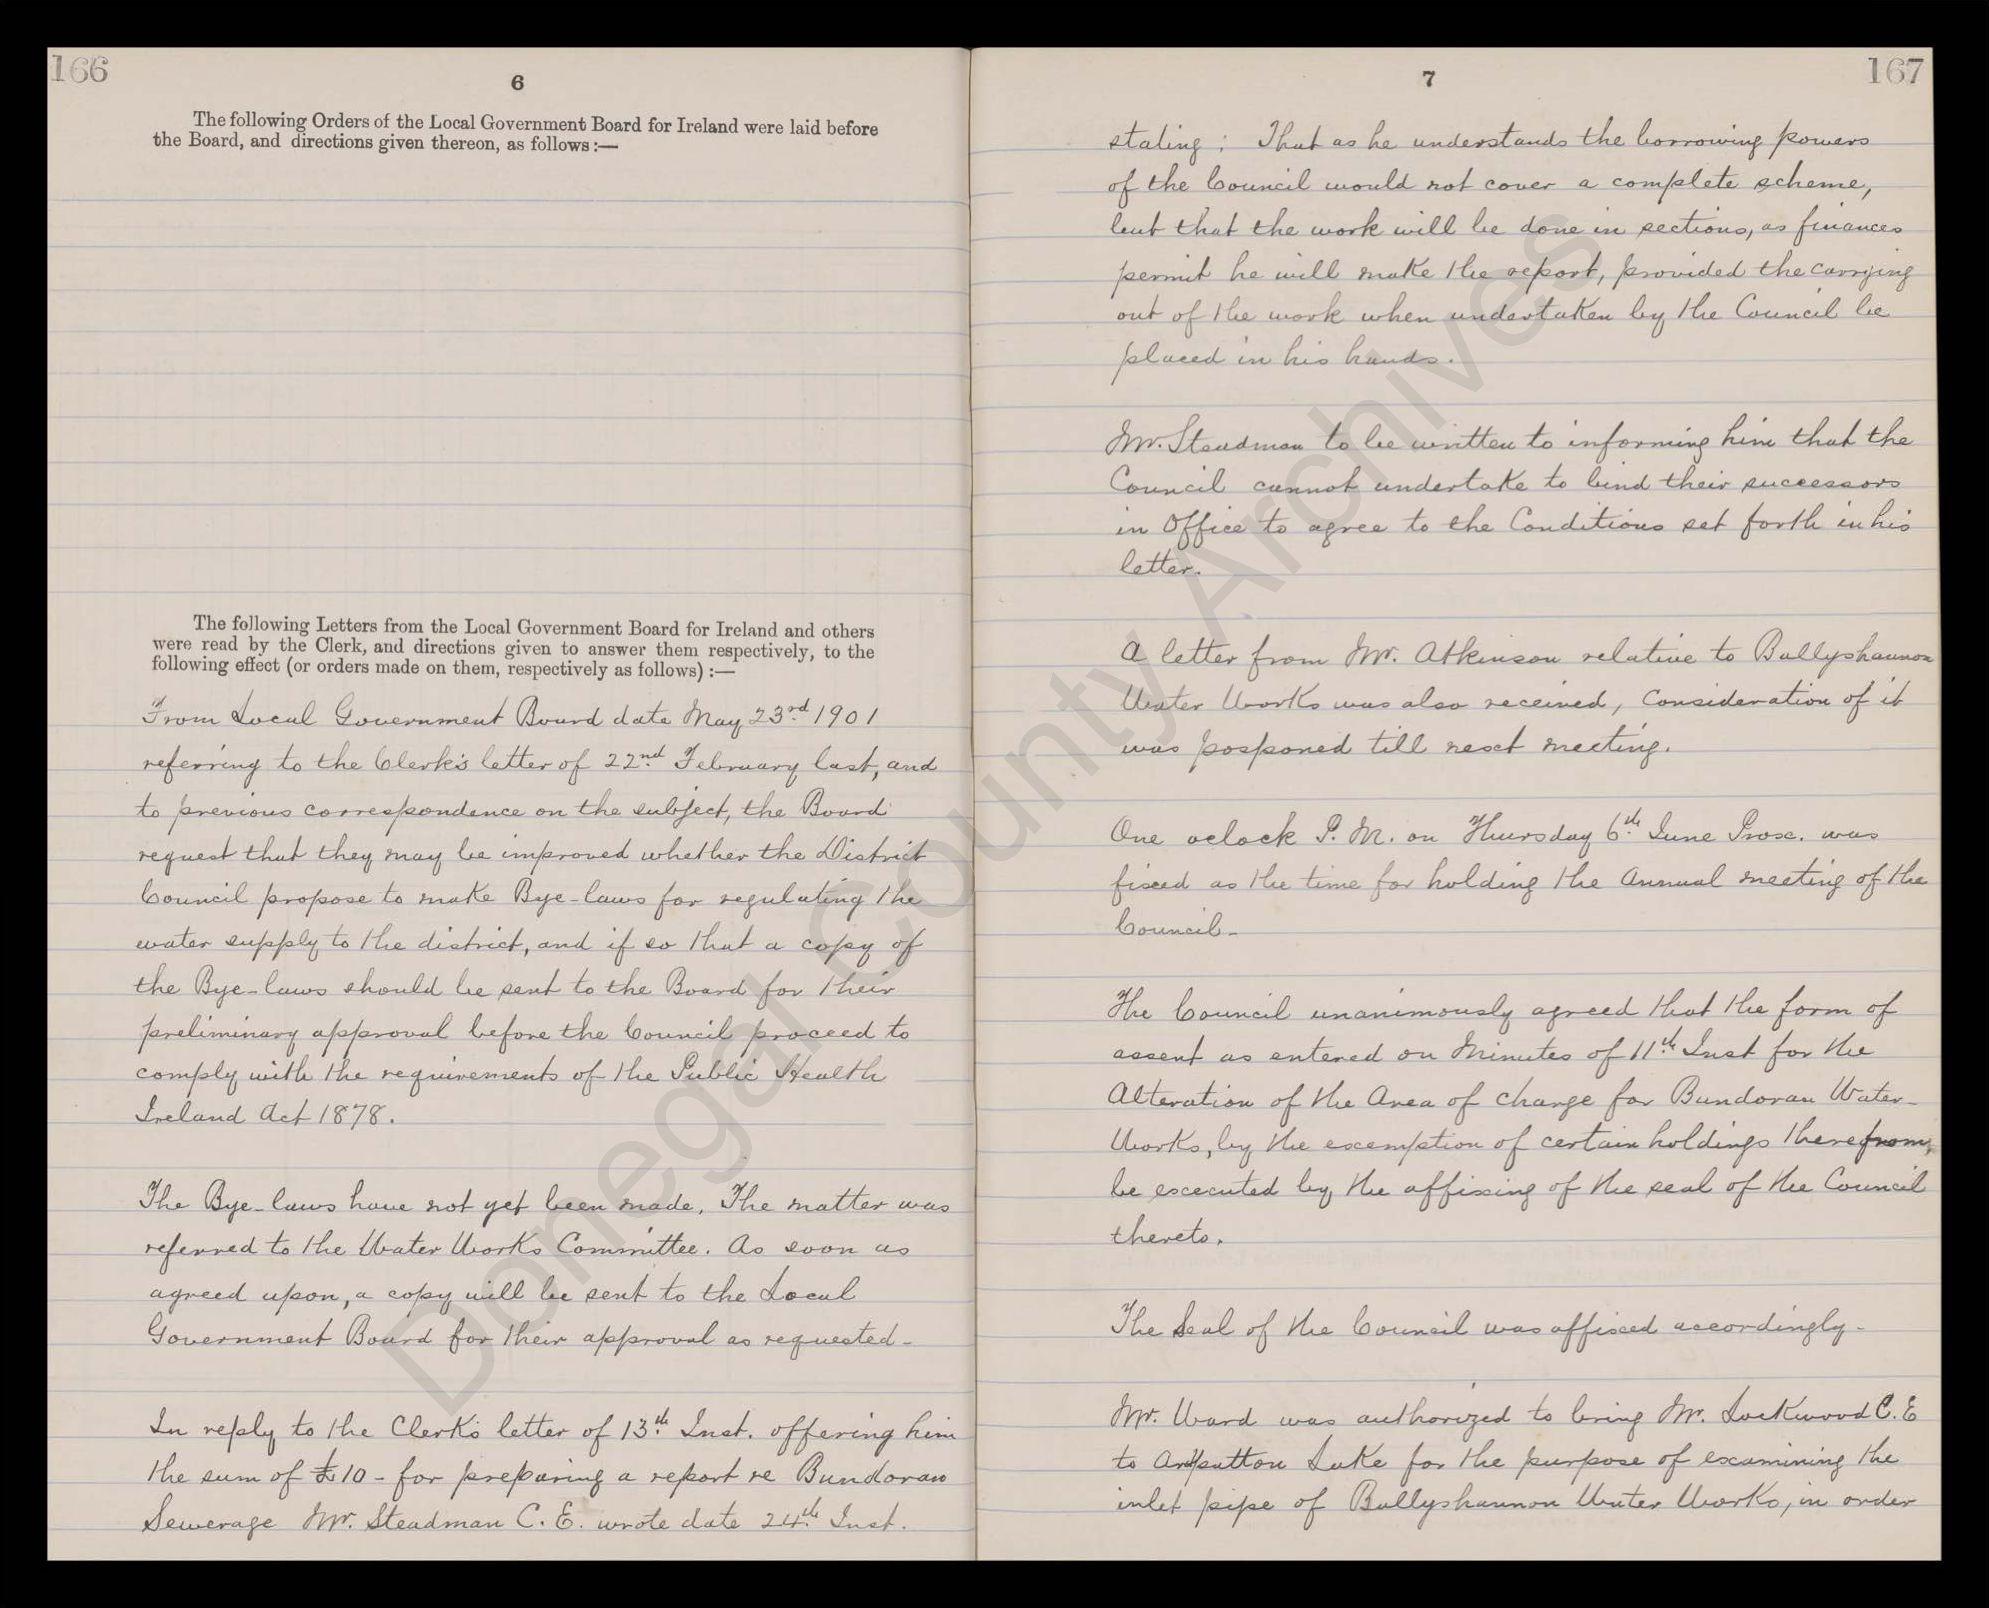 166
6
The following Orders of the Local Government Board for Ireland were laid before
the Board, and directions given thereon, as follows :—
The following Letters from the Local Government Board for Ireland and others
were read by the Clerk, and directions given to answer them respectively, to the
following effect (or orders made on them, respectively as follows) :—
From Local Government Board date May 23rd 1901
referring to the Clerk's letter of 22nd February last, and
to previous correspondence on the subject, the Board
request that they may be improved whether the District
Council propose to make Bye-laws for regulating the
water supply to the district, and if so that a copy of
the Bye-laws should be sent to the Board for their
preliminary approval before the Council proceed to
comply with the requirements of the Public Health
Ireland Act 1878.
The Bye-laws have not yet been made. The matter was
referred to the Water Works Committee. As soon as
agreed upon, a copy will be sent to the Local
Government Board for their approval as requested-
In reply to the Clerk's letter of 13th Inst. offering him
the sum of £10 - for preparing a report re Bundoran
Sewerage Mr. Steadman C. E. wrote date 24th Inst.
167
7
stating ; That as he understands the borrowing powers
of the Council would not cover a complete scheme,
but that the work will be done in sections, as finances
permit he will make the report, provided the carrying
out of the work when undertaken by the Council be
placed in his hands.
Mr. Steadman to be written to informing him that the
Council cannot undertake to bind their successors
in Office to agree to the Conditions set forth in his
letter.
A letter from Mr. Atkinson relative to Ballyshannon
Water Works was also received, Consideration of it
was posponed till next meeting.
One oclock P. M. on Thursday 6th June Prox. was
fixed as the time for holding the Annual meeting of the
Council-
The Council unanimously agreed that the form of
assent as entered on Minutes of 11th Inst for the
Alteration of the Area of charge for Bundoran Water-
Works, by the exemption of certain holdings therefrom,
be executed by the affixing of the seal of the Council
thereto.
The Seal of the Council was affixed accordingly-
Mr. Ward was authorized to bring Mr. Lockwood C. E
to Lake for the purpose of examining the
inlet pipe of Ballyshannon Water Works, in order
Donegal County Archives